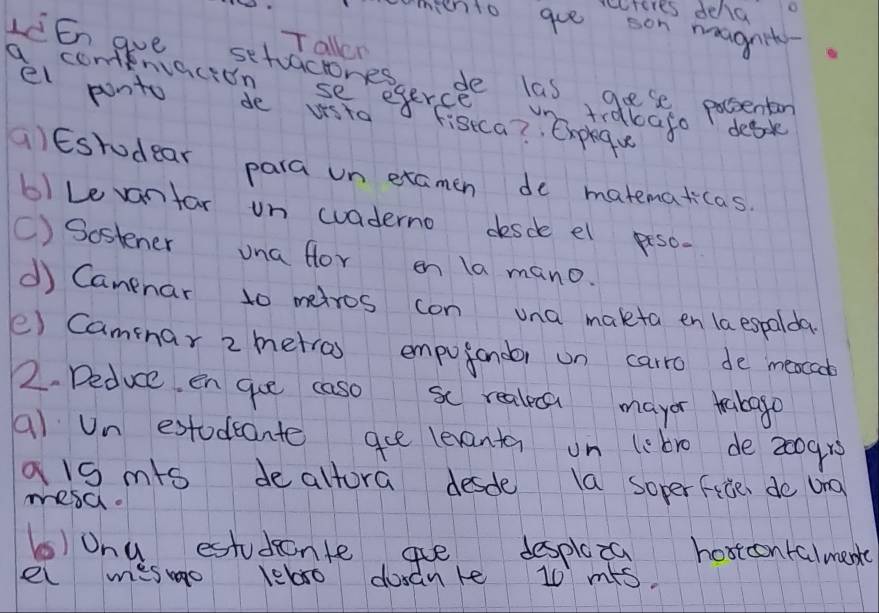 que son magnitu-
Taller
1. En que setuaciones de las que se presentan
a contenuación se egerce un trabajo desde
el punto de vista fisica?. Expleque
a) Estudear para un examen de matematicas.
b) Levantar un cuaderno desde el peso-
c) Sostener una flor en la mano.
d) Camenar 10 metros con una maleta en la espalda.
e) Camenar 2 metros empujando un carro de mercado
2. Deduce. en que caso se realeca mayor trabago
a) Un estudeante que levanta un lebro de 200grs
a 15 mts de altura desde la soperficie de una
mesa.
b) Una estudeante que desplaza horecontalmente
el mesmo lebro durante 10 mts.